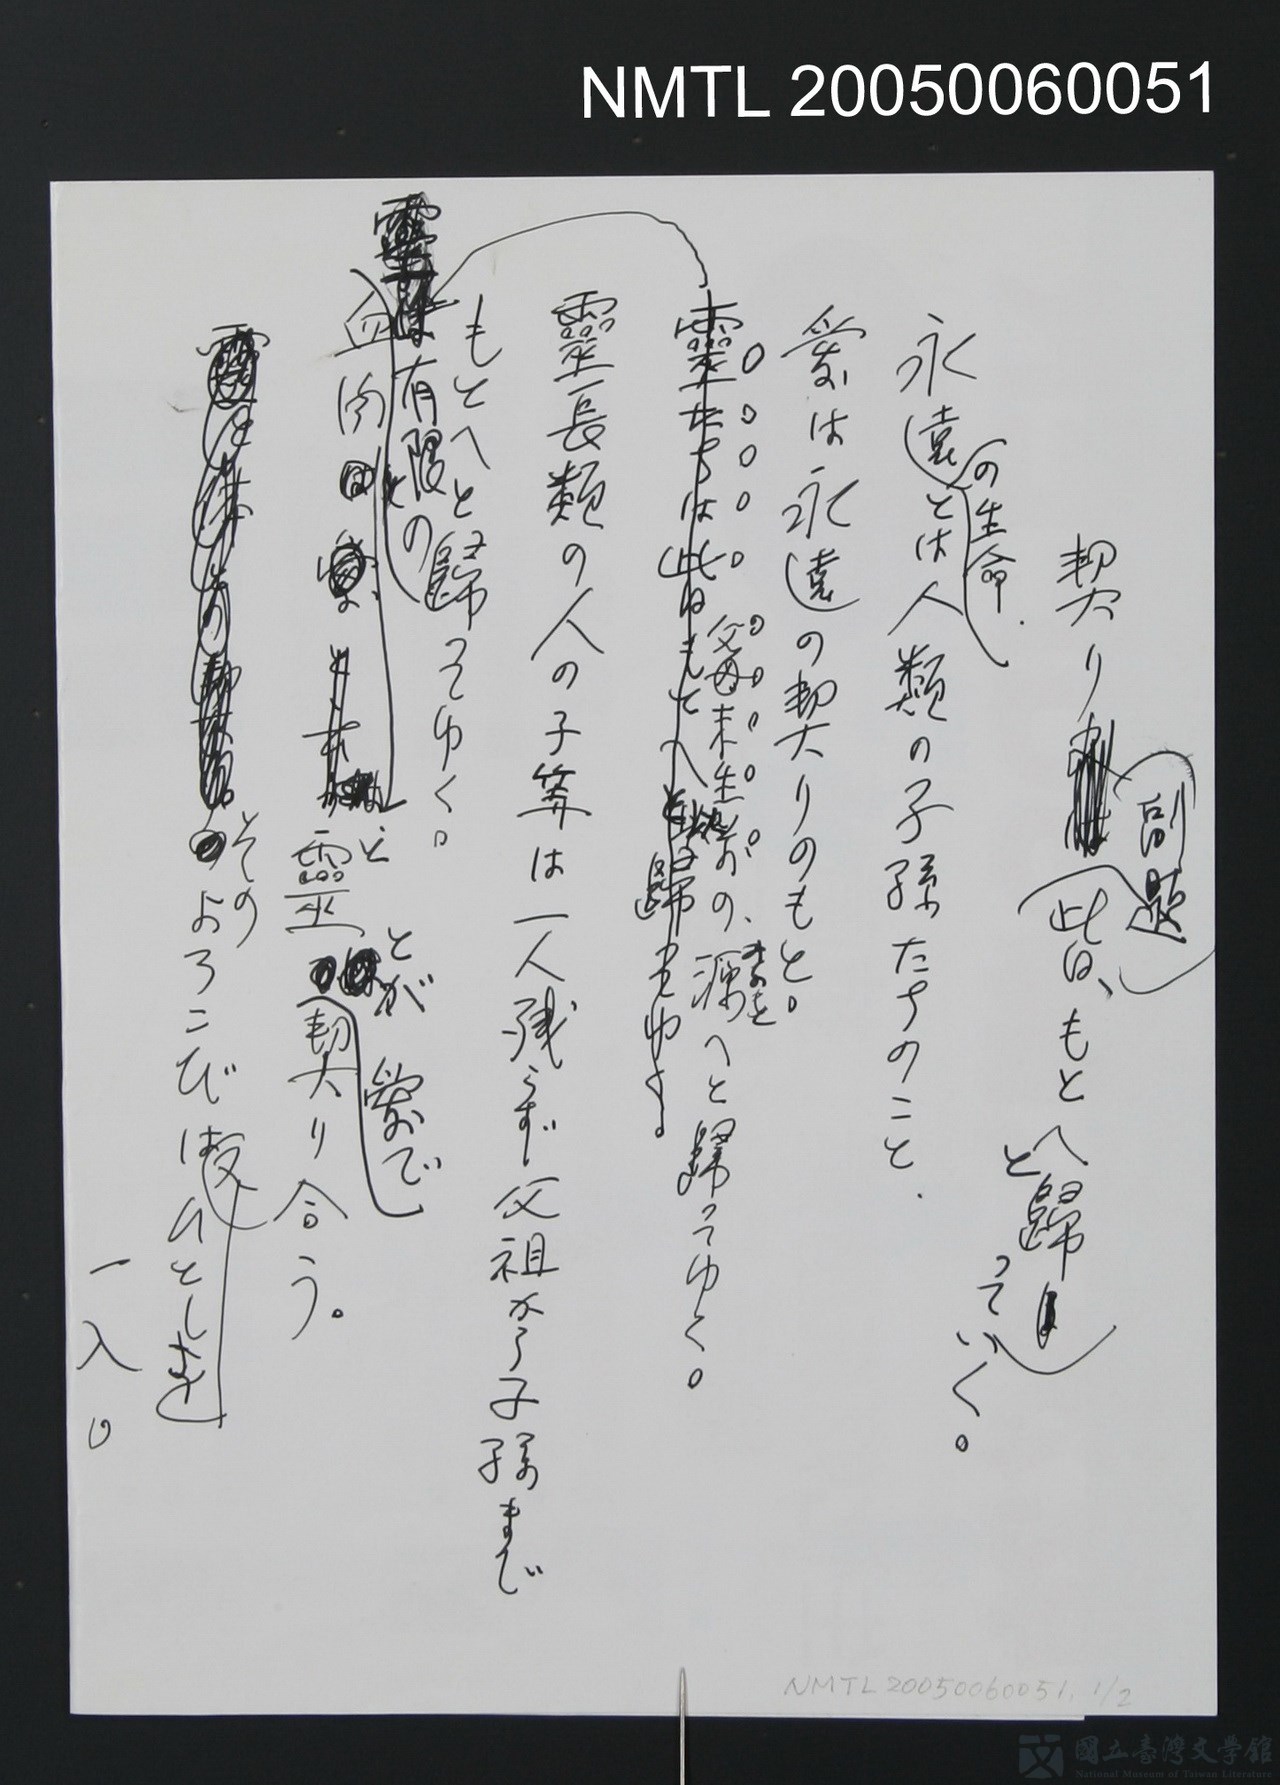 NMTL 20050060051
副題
契り 此は、もとへと歸っていく。
の生命.
永遠とは人類の子孫たちのこと.
愛は永遠の契りのもと。
父母未生前の、源へと歸ってゆく。
靈たちは此はもとへと歸りゆく。
靈長類の人の子等は一人残らず父祖から子孫まで
もとへと歸ってゆく。
有限の
とが 愛で
血肉と靈 契り合う。
その
よろこびは
一入。
NMTL 20050060051, 1/2
國立臺灣文學館
National Museum of Taiwan Literature